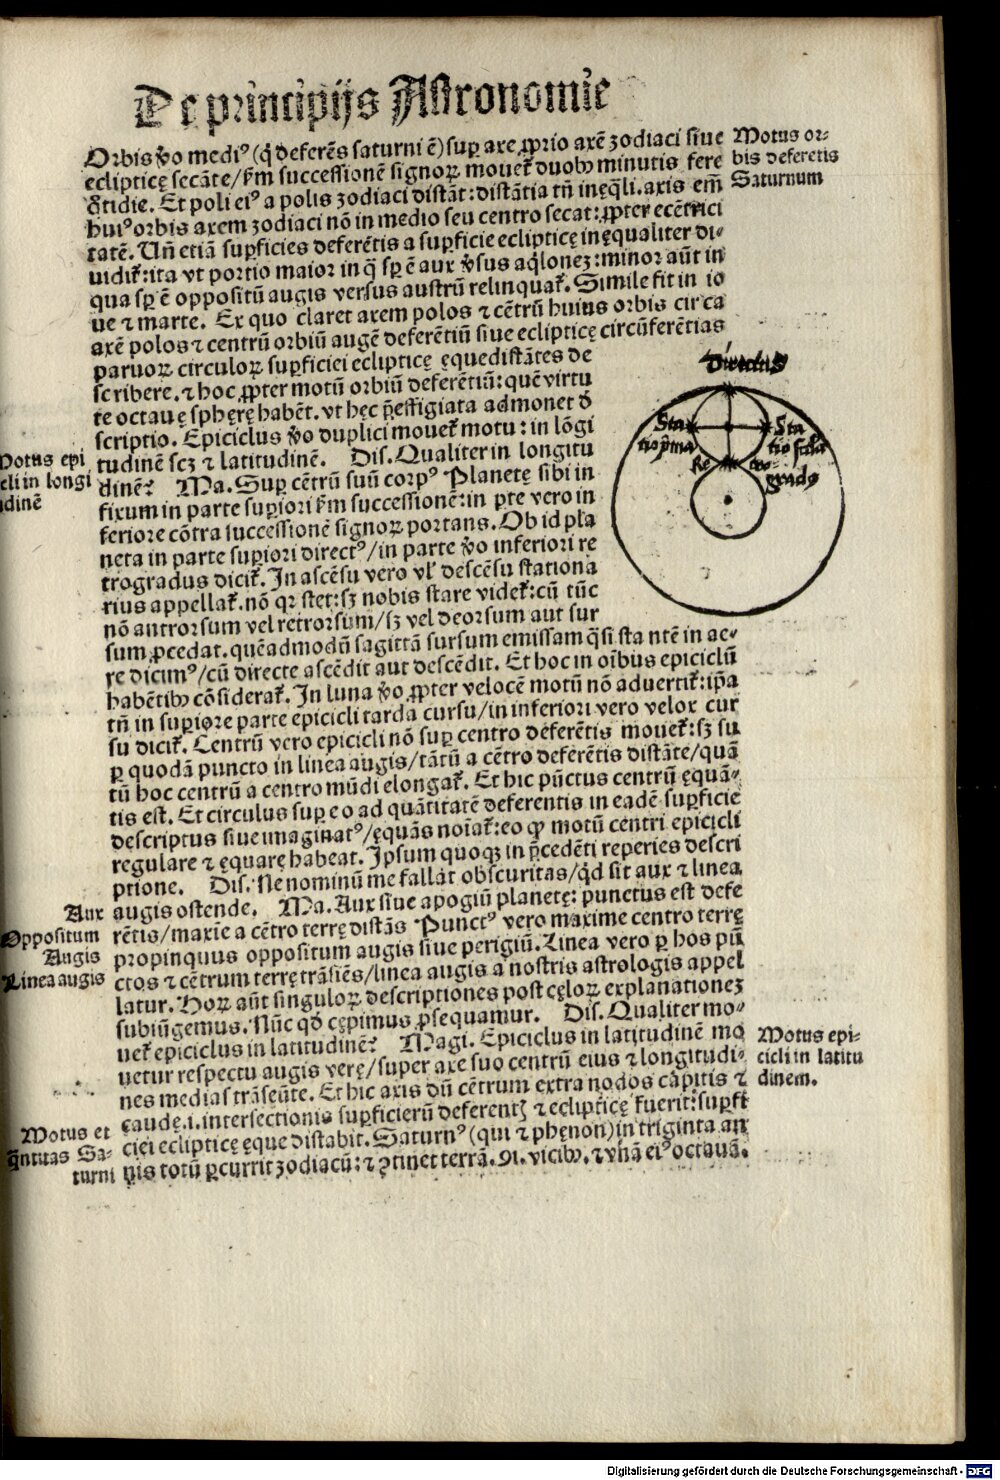 De principijs Astronomie
Orbis ꝟo mediꝰ (q̄ deferēs saturni ē) suꝑ axe ꝓprio axē zodiaci siue
eclipticę secāte / ẜm successionē signoꝝ mouet᷑ duobꝰ minutis fere
Et poli eiꝰ a polis zodiaci distāt: distātia tn̄ inęq̄li. axis em̄
huiꝰ orbis axem zodiaci nō in medio seu centro secat: ꝓpter ecētrici
tatē. Un̄ etiā suꝑficies deferētis a suꝑficie eclipticę inęqualiter di⸗
uidit᷑: ita vt portio maior in q̄ sꝑ ē aux ꝟsus aq̇lonez: minor aūt in
qua sꝑ ē oppositū augis versus austrū relinquat᷑. Simile fit in io
ue ⁊ marte. Ex quo claret axem polos ⁊ cētrū huius orbis circa
axē polos ⁊ centrū orbiū augē deferētiū siue eclipticę circūferētias
paruoꝝ circuloꝝ suꝑficiei eclipticę ęquedistātes de
scribere. ⁊ hoc ꝓpter motū orbiū deferētiū: quē virtu
te octauę sphęrę habēt. vt hęc p̄effigiata admonet d̄
scriptio. Epiciclus ꝟo duplici mouet᷑ motu: in lōgi
tudinē scz ⁊ latitudinē. Dis. Qualiter in longitu
dinē? Ma. Suꝑ cētrū suū corpꝰ Planetę sibi in
fixum in parte suꝑiori ẜm successionē: in ꝑte vero in
feriore cōtra successionē signoꝝ portans. Ob id pla
neta in parte suꝑiori directꝰ / in parte ꝟo inferiori re
trogradus dicit᷑. In ascēsu vero vl᷑ descēsu stationa
rius appellat᷑. nō qꝛ stet: sꝫ nobis stare videt᷑: cū tūc
nō antrorsum vel retrorsum / sꝫ vel deorsum aut sur
sum ꝓcedat. quēadmodū sagittā sursum emissam q̄si stantē in ae⸗
re dicimꝰ / cū directe ascēdit aut descēdit. Et hoc in oībus epiciclū
habētibꝰ cōsiderat᷑. In luna ꝟo ꝓpter velocē motū nō aduertit᷑: ip̄a
tn̄ in suꝑiore parte epicicli tarda cursu / in inferiori vero velox cur
su dicit᷑. Centrū vero epicicli nō suꝑ centro deferētis mouet᷑: sꝫ su
ꝑ quodā puncto in linea augis / tātū a cētro deferētis distāte / quā
tū hoc centrū a centro mūdi elongat᷑. Et hic pūctus centrū ęquā⸗
tis est. Et circulus suꝑ eo ad quātitatē deferentis in eadē suꝑficie
descriptus siue imaginatꝰ / ęquās noīat᷑: eo ꝙ motū centri epicicli
regulare ⁊ ęquarę habeat. Ipsum quoqꝫ in p̄cedēti reperies descri
ptione. Dis. Ne nominū me fallat obscuritas / qd̄ sit aux ⁊ linea
augis ostende. Ma. Aux siue apogiū planetę: punctus est defe
rētis / maxīe a cētro terrę distās Punctꝰ vero maxime centro terrę
propinquus oppositum augis siue perigiū. Linea vero ꝑ hos pū
ctos ⁊ cētrum terrę trāsiēs / linea augis a nostris astrologis appel
latur. Hoꝝ aūt singuloꝝ descriptiones post cęloꝝ explanationez
subiūgemus. Nūc qd̄ cępimus ꝓsequamur. Dis. Qualiter mo⸗
uet᷑ epiciclus in latitudinē? Magi. Epiciclus in latitudinē mo
uetur respectu augis verę / super axe suo centrū eius ⁊ longitudi⸗
nes medias trāseūte. Et hic axis dū cētrum extra nodos capitis ⁊
caudę .i. intersectionis suꝑficierū deferentꝫ ⁊ eclipticę fuerit: suꝑfi
ciei eclipticę ęque distabit. Saturnꝰ (qui ⁊ phęnon) in triginta an
nis totū ꝑcurrit zodiacū: ⁊ ꝯtinet terrā. 91. vicibꝰ. ⁊ vnā eiꝰ octauā.
Motus or⸗
bis deferētis
Saturnum
Directus
Sta
tio p̄ma
Sta
tio scd̄a
Re
tro
gradꝰ
Motus epi
cli in longi
dinē
Aux
Oppositum
Augis
Linea augis
Motus epi⸗
cicli in latitu
dinem.
Motus et
q̄ntitas Sa⸗
turni
Digitalisierung gefördert durch die Deutsche Forschungsgemeinschaft - DFG